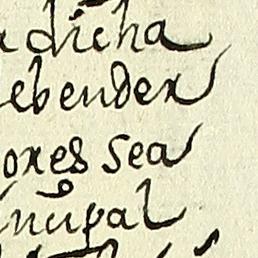 dicha
ebender
ores sea
ncipal